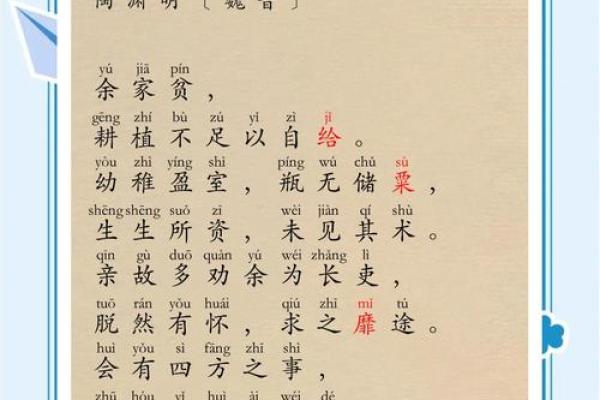 陶渊明〔魏晋〕
yú jiā pín
余家贫，
gēng zhí bù zú yǐ zì jǐ
耕植不足以自给。
yòu zhì yíng shì píng wú chǔ sù
幼稚盈室，瓶无储粟，
shēng shēng suǒ zī wèi jiàn qí shù
生生所资，未见其术。
qīn gù duō quàn yú wéi zhǎng lì
亲故多劝余为长吏，
tuō rán yǒu huái qiú zhī mǐ tú
脱然有怀，求之靡途。
huì yǒu sì fāng zhī shì
会有四方之事，
zhū hóu yǐ huì ài wéi dé